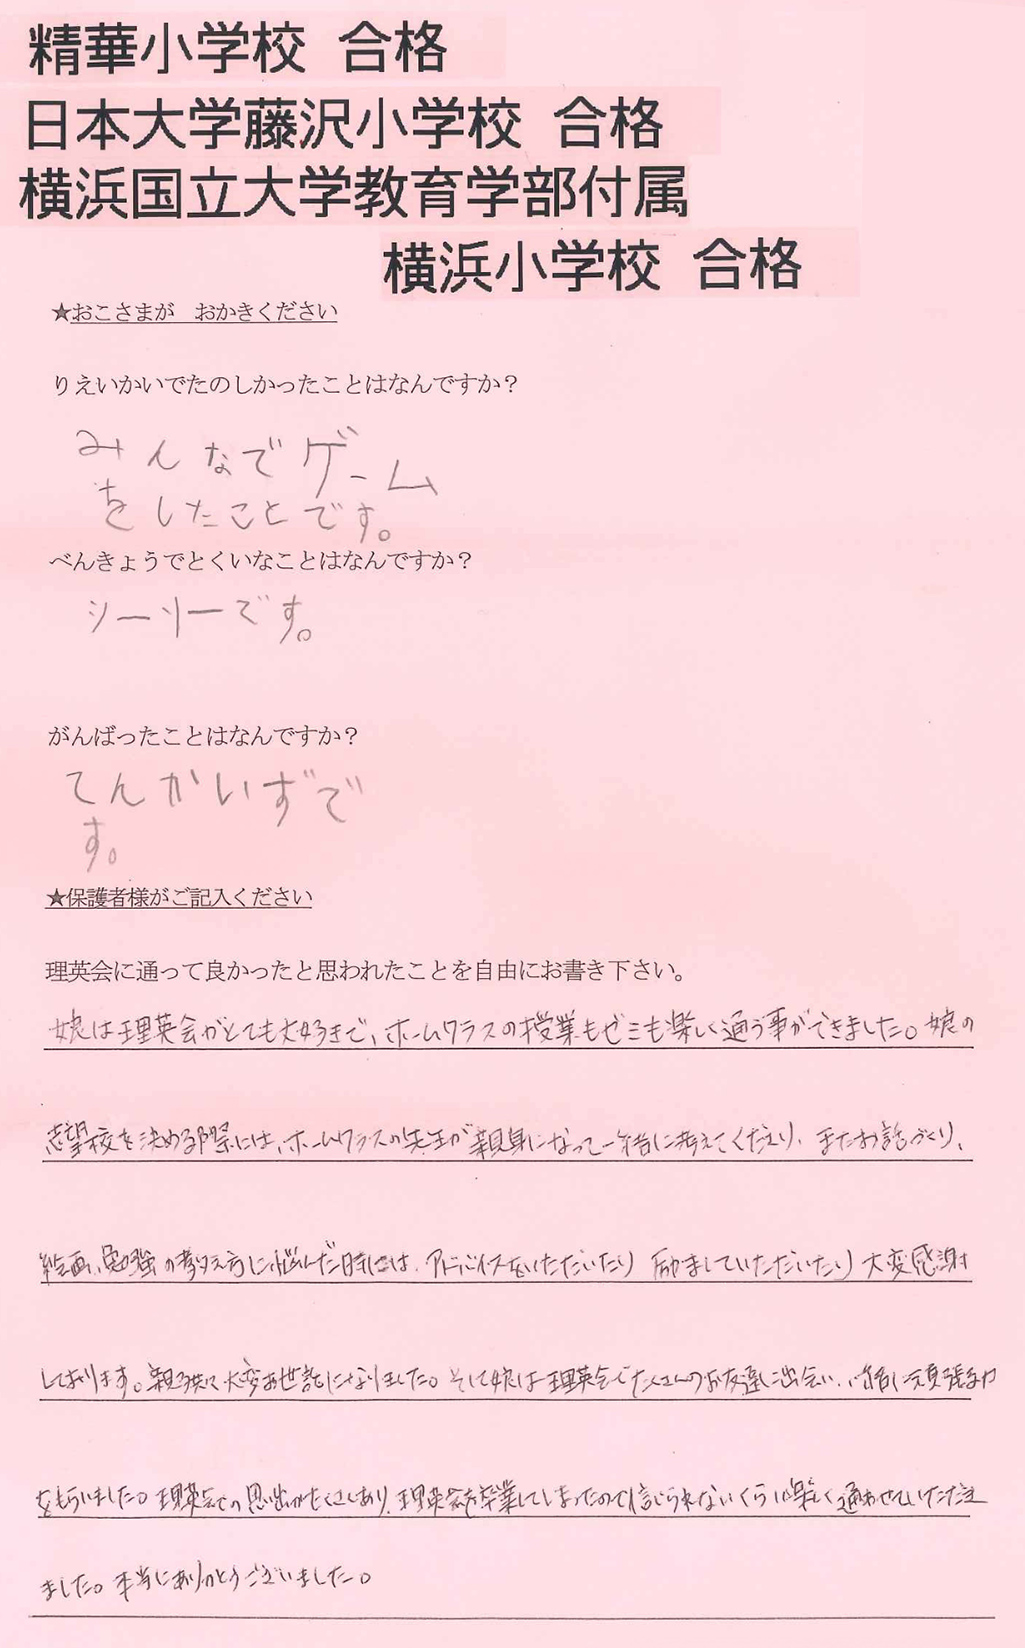 精華小学校 合格
日本大学藤沢小学校 合格
横浜国立大学教育学部付属
横浜小学校 合格
★おこさまが おかきください
りえいかいでたのしかったことはなんですか？
みんなでゲーム
をしたことです。
べんきょうでとくいなことはなんですか？
シーソーです。
がんばったことはなんですか？
てんかいずで
す。
★保護者様がご記入ください
理英会に通って良かったと思われたことを自由にお書き下さい。
娘は理英会がとても大好きで、ホームクラスの授業もゼミも楽しく通う事ができました。娘の
志望校を決める際には、ホームクラスの先生が親身になって一緒に考えてくださり、またお話づくり、
絵画、勉強の教え方に悩んだ時には、アドバイスをいただいたり励ましていただいたり大変感謝
しております。親子共に大変お世話になりました。そして娘は理英会でたくさんのお友達に出会い、一緒に頑張る力
をもらいました。理英会での思い出がたくさんあり、理英会を卒業してしまったので信じられないくらい楽しく通わせていただき
ました。本当にありがとうございました。